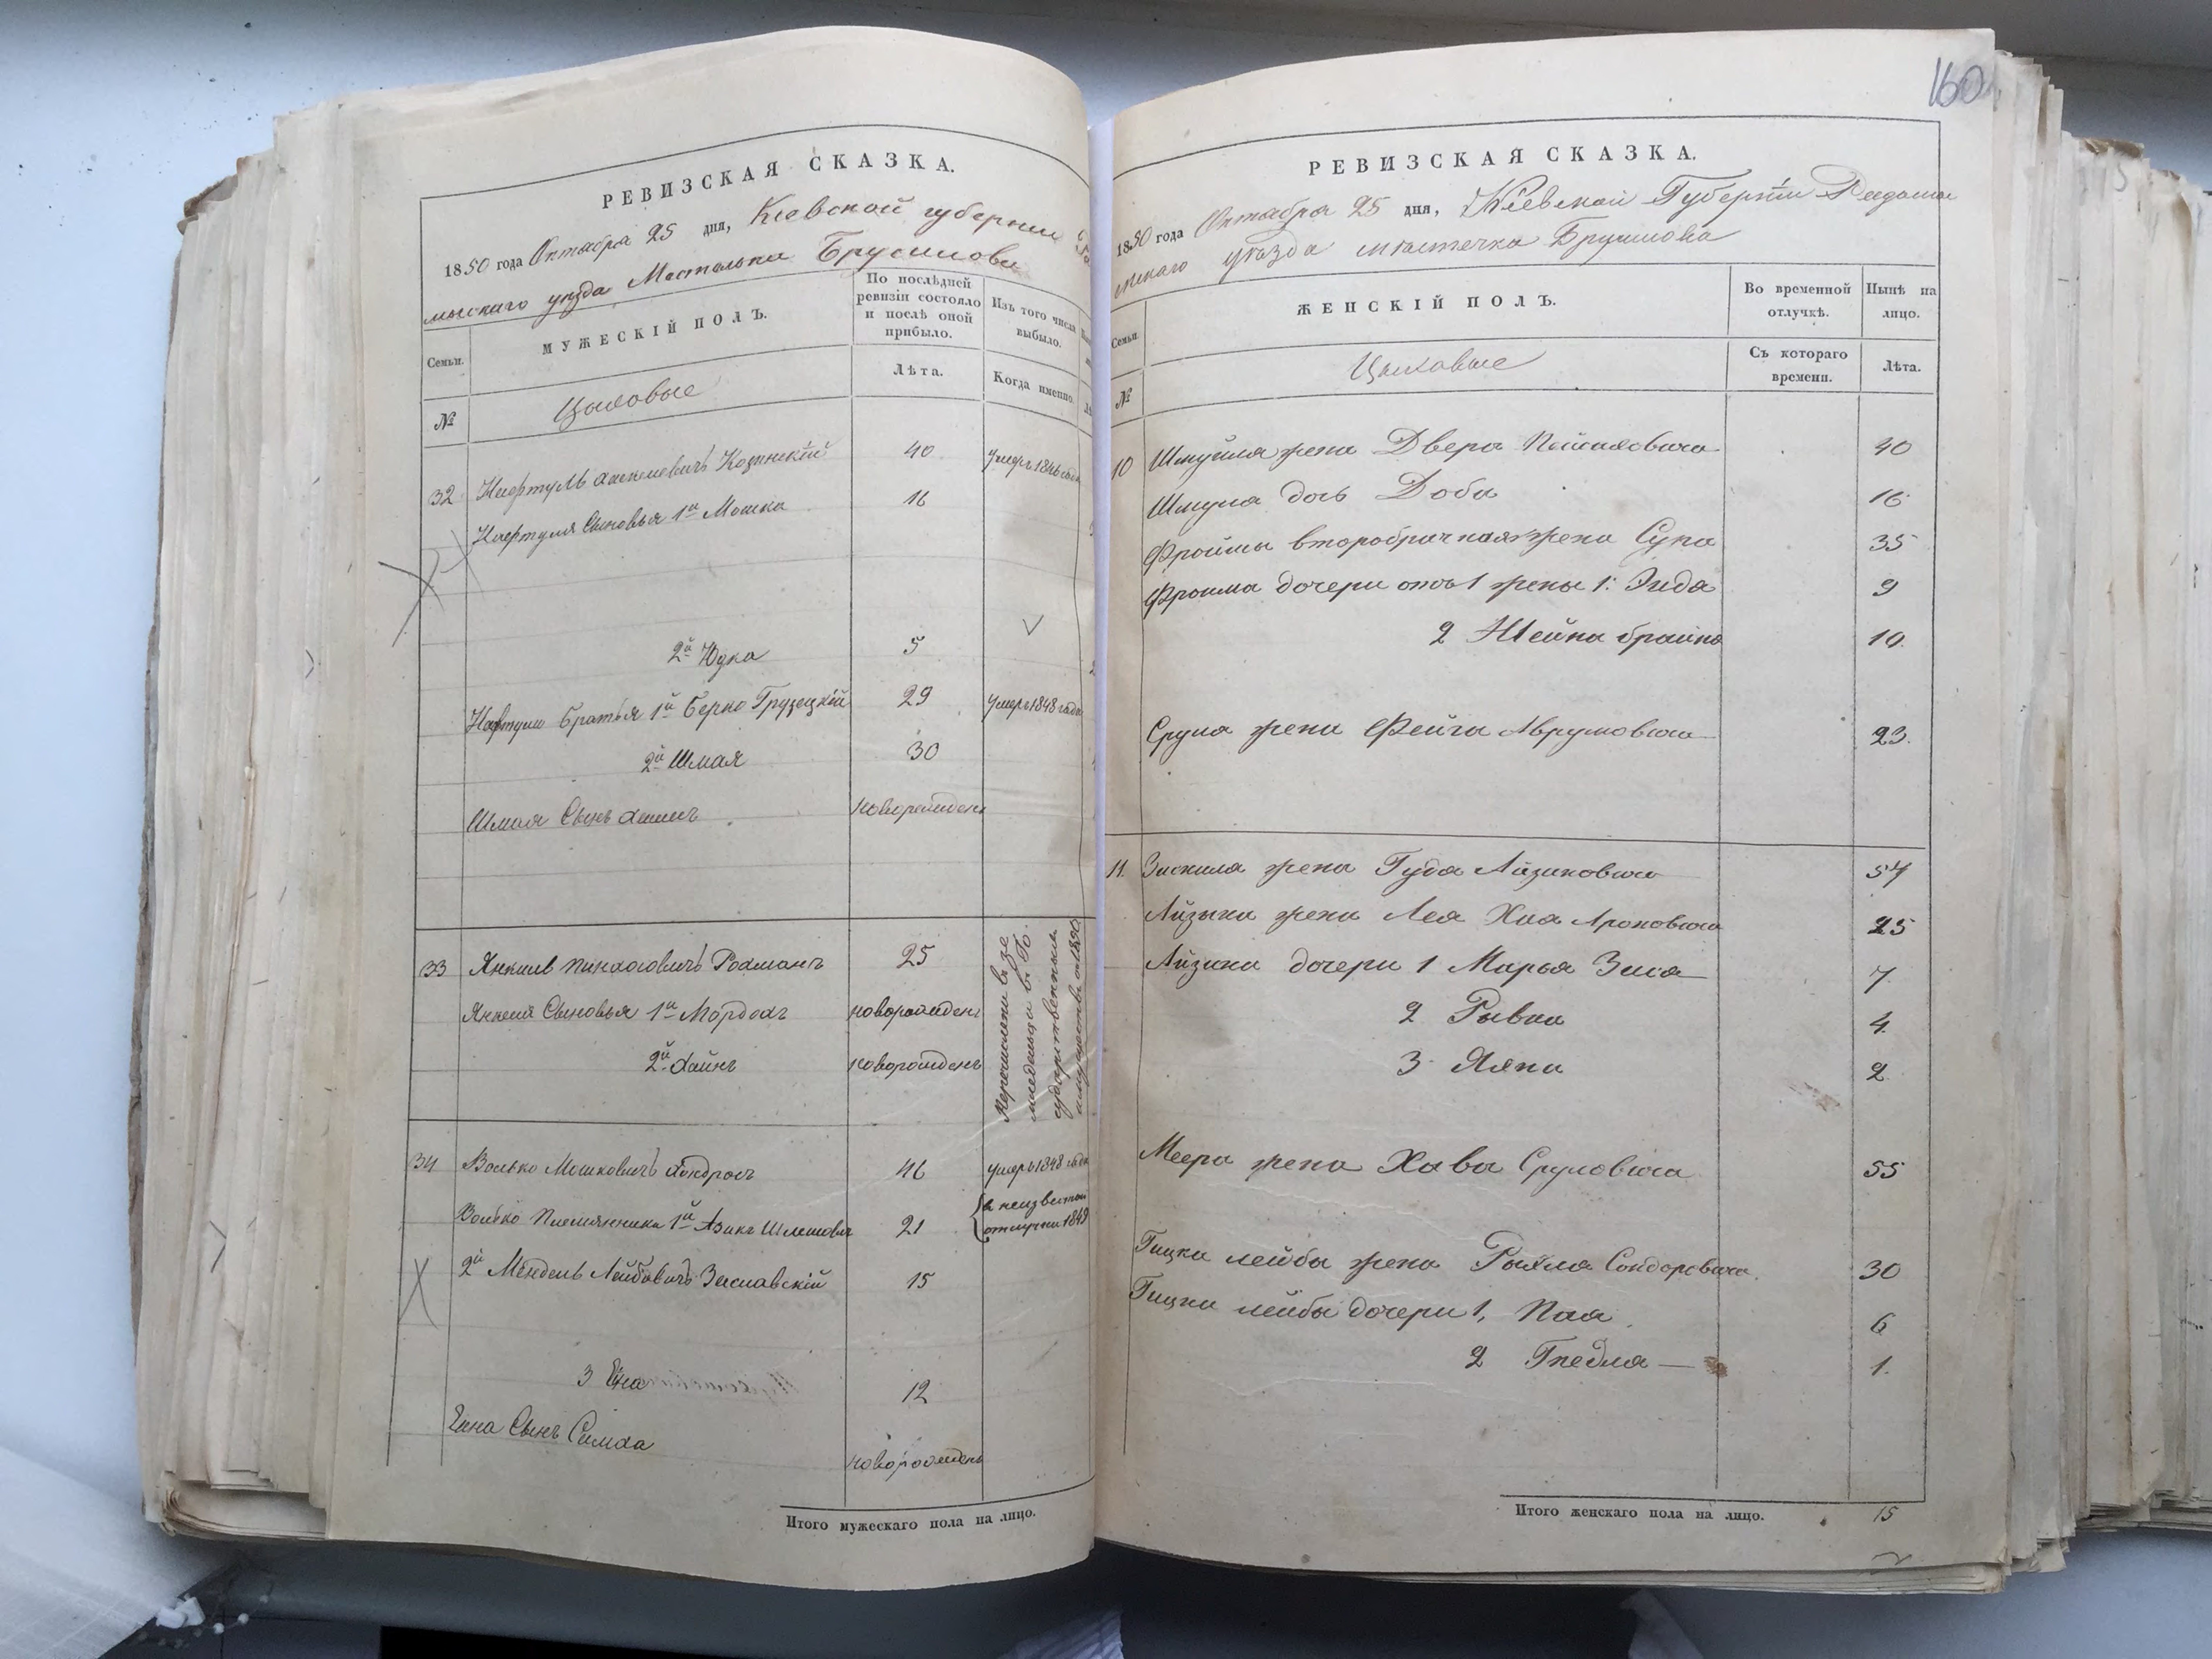 РЕВИЗСКАЯ СКАЗКА.
1850 года Октября 25 дня, Кіевской губерніи
мыскаго уѣзда Мѣстечка Брусилова
Семьи.
МУЖЕСКІЙ ПОЛЪ.
По послѣдней
ревизіи состояло
и послѣ оной
прибыло.
Изъ того числа
выбыло.
№
Цеховые
Лѣта.
Когда именно.
32 Нафтуль Хаскелевичъ Козинскій 40 умеръ 1846 года
Нафтуля Сыновья 1й Мошко 16
2й Юдка 5
Нафтули братья 1й Берко Грузецкій 29 умеръ 1848 года
2й Шмая 30
Шмая Сынъ новорожденъ
33 Янкель Пинхасовичъ Рохманъ 25
Янкеля Сыновья 1й Мордохъ новорожденъ
2й Хаимъ новорожденъ
Перечисленъ въ зе
мледѣльцы въ Го
сударственныя
имущества 1850
34 Волько Мошковичъ Хондрось 46 умеръ 1848 года
Волько Племянники 1й Азикъ Шлиомовичъ 21 в неизвѣстной
отлучки 1849
2й Мендель Лейбовичъ Заславскій 15
3 12
Сынъ Симха
новорожденъ
Итого мужескаго пола на лицо.
160
РЕВИЗСКАЯ СКАЗКА.
1850 года Октября 25 дня, Кіевской Губерніи Радомы
скаго уѣзда мѣстечка Брусилова
Семьи.
ЖЕНСКІЙ ПОЛЪ.
Во временной
отлучкѣ.
Нынѣ на
лицо.
№
Цеховые
Съ котораго
времени.
Лѣта.
10 Шмуйла жена Двера 40
Шмула дочь Доба 16
Фроимы второбрачная жена Сура 35
Фроима дочери отъ 1 жены 1. Энда 9
2 Шейна брайна 10.
Срула жена Фейга Аврумовича 23.
11. Зискила жена Гуда Айзиковича 54
Айзыка жена Лея Хая Ароновича 25
Айзика дочери 1 Марья Зиса 7
2 Рывка 4
3 2
Меера жена Хава Сруловича 55
Гицки лейбы жена Рыхля Сондоровича 30
Гицки лейбы дочери 1, Пая 6
2 Гнедля 1.
Итого женскаго пола на лицо. 15